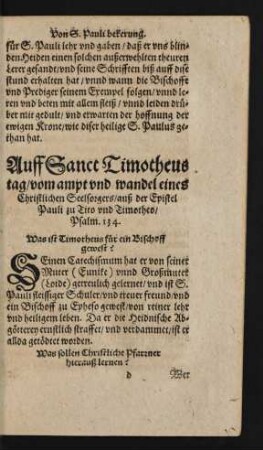 Von S. Pauli bekerung.
für S. Pauli lehr vnd gaben / daß er vns blin-
den Heiden einen solchen außerwehlten theuren
Lerer gesandt / vnd seine Schrifften biß auff dise
stund erhalten hat / vnnd wann die Bischoffe
vnd Prediger seinem Exempel folgen / vnnd le-
ren vnd beten mit allem fleiß / vnnd leiden drü-
ber mit gedult / vnd erwarten der hoffnung der
ewigen Krone / wie diser heilige S. Paulus ge-
than hat.
Auff Sanct Timotheus
tag / vom ampt vnd wandel eines
Christlichen Seelsorgers / auß der Epistel
Pauli zu Tito vnd Timotheo /
Psalm. 134.
Was ist Timotheus für ein Bischoff
gewest?
SEinen Catechismum hat er von seiner
Muter (Eunike) vnnd Großmuter
(Loide) getreulich gelernet / vnd ist S.
Pauli fleissiger Schuler / vnd treuer freund / vnd
ein Bischoff zu Epheso gewest / von reiner lehr
vnd heiligem leben. Da er die Heidnische Ab-
götterey ernstlich straffet / vnd verdammet / ist er
allda getödtet worden.
Was sollen Christliche Pfarrner
hierauß lernen?
d Wer